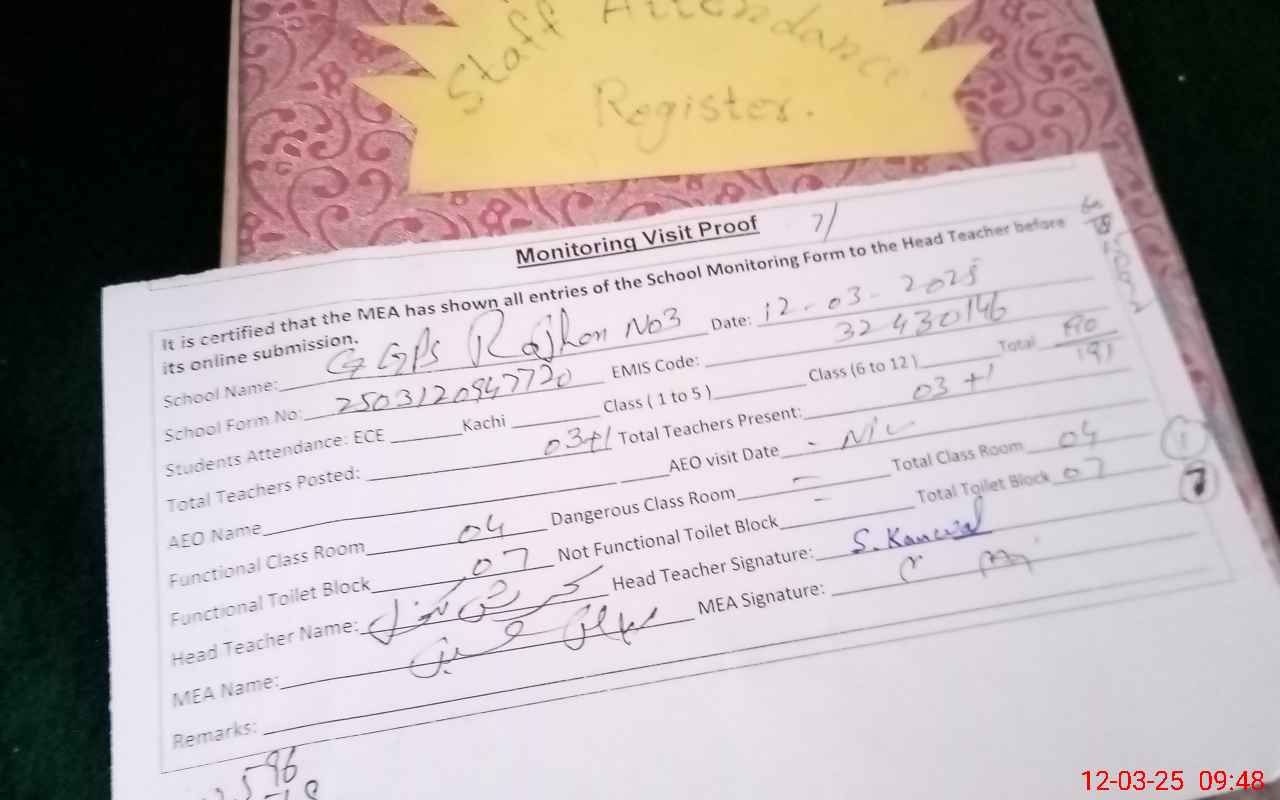 Staff Attendance
Register.
Monitoring Visit Proof 7/
It is certified that the MEA has shown all entries of the School Monitoring Form to the Head Teacher before
its online submission.
School Name: GGPS Rajhan No3 Date: 12-03-2025
School Form No: 2503120947720 EMIS Code: 32430146
Students Attendance: ECE Kachi Class ( 1 to 5 ) Class (6 to 12 ) Total 191
Total Teachers Posted: 03+1 Total Teachers Present: 03+1
AEO Name AEO visit Date - Nil
Functional Class Room 04 Dangerous Class Room - Total Class Room 04
Functional Toilet Block 07 Not Functional Toilet Block - Total Toilet Block 07
Head Teacher Name: Head Teacher Signature: S. Kanwal
MEA Name: MEA Signature:
Remarks:
596
12-03-25 09:48